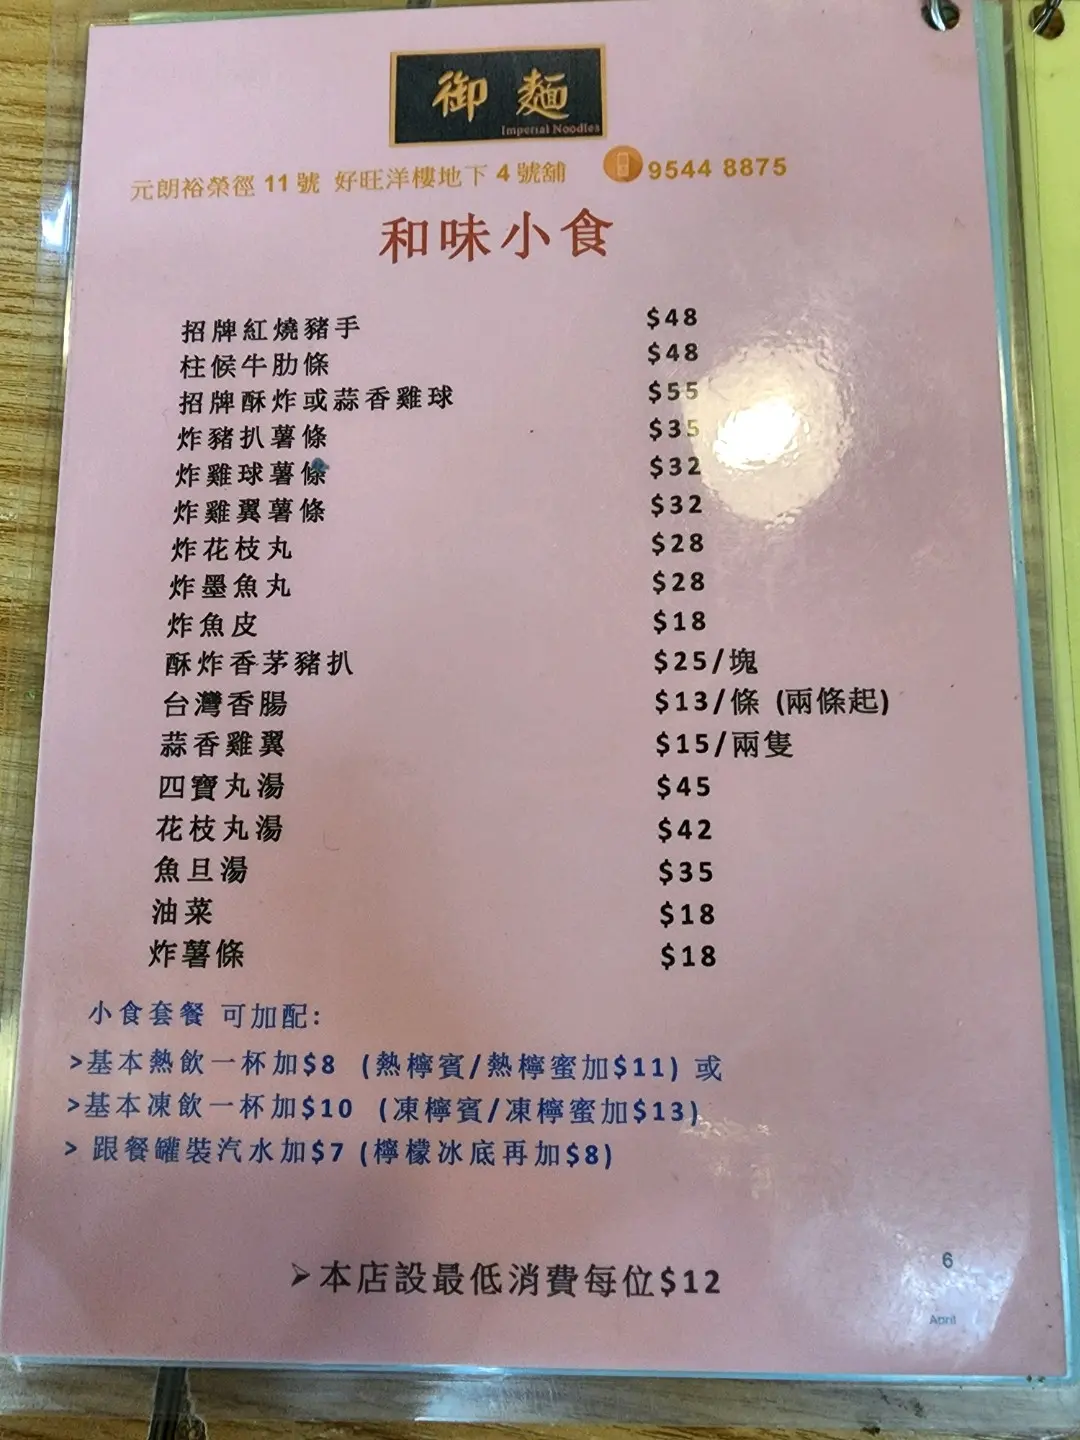 御麵
Imperial Noodles
元朗裕榮徑 11 號 好旺洋樓地下 4 號舖 9544 8875
和味小食
招牌紅燒豬手 $48
柱候牛肋條 $48
招牌酥炸或蒜香雞球 $55
炸豬扒薯條 $35
炸雞球薯條 $32
炸雞翼薯條 $32
炸花枝丸 $28
炸墨魚丸 $28
炸魚皮 $18
酥炸香茅豬扒 $25/塊
台灣香腸 $13/條 (兩條起)
蒜香雞翼 $15/兩隻
四寶丸湯 $45
花枝丸湯 $42
魚旦湯 $35
油菜 $18
炸薯條 $18
小食套餐 可加配:
>基本熱飲一杯加$8 (熱檸賓/熱檸蜜加$11) 或
>基本凍飲一杯加$10 (凍檸賓/凍檸蜜加$13)
> 跟餐罐裝汽水加$7 (檸檬冰底再加$8)
➢本店設最低消費每位$12
6
April